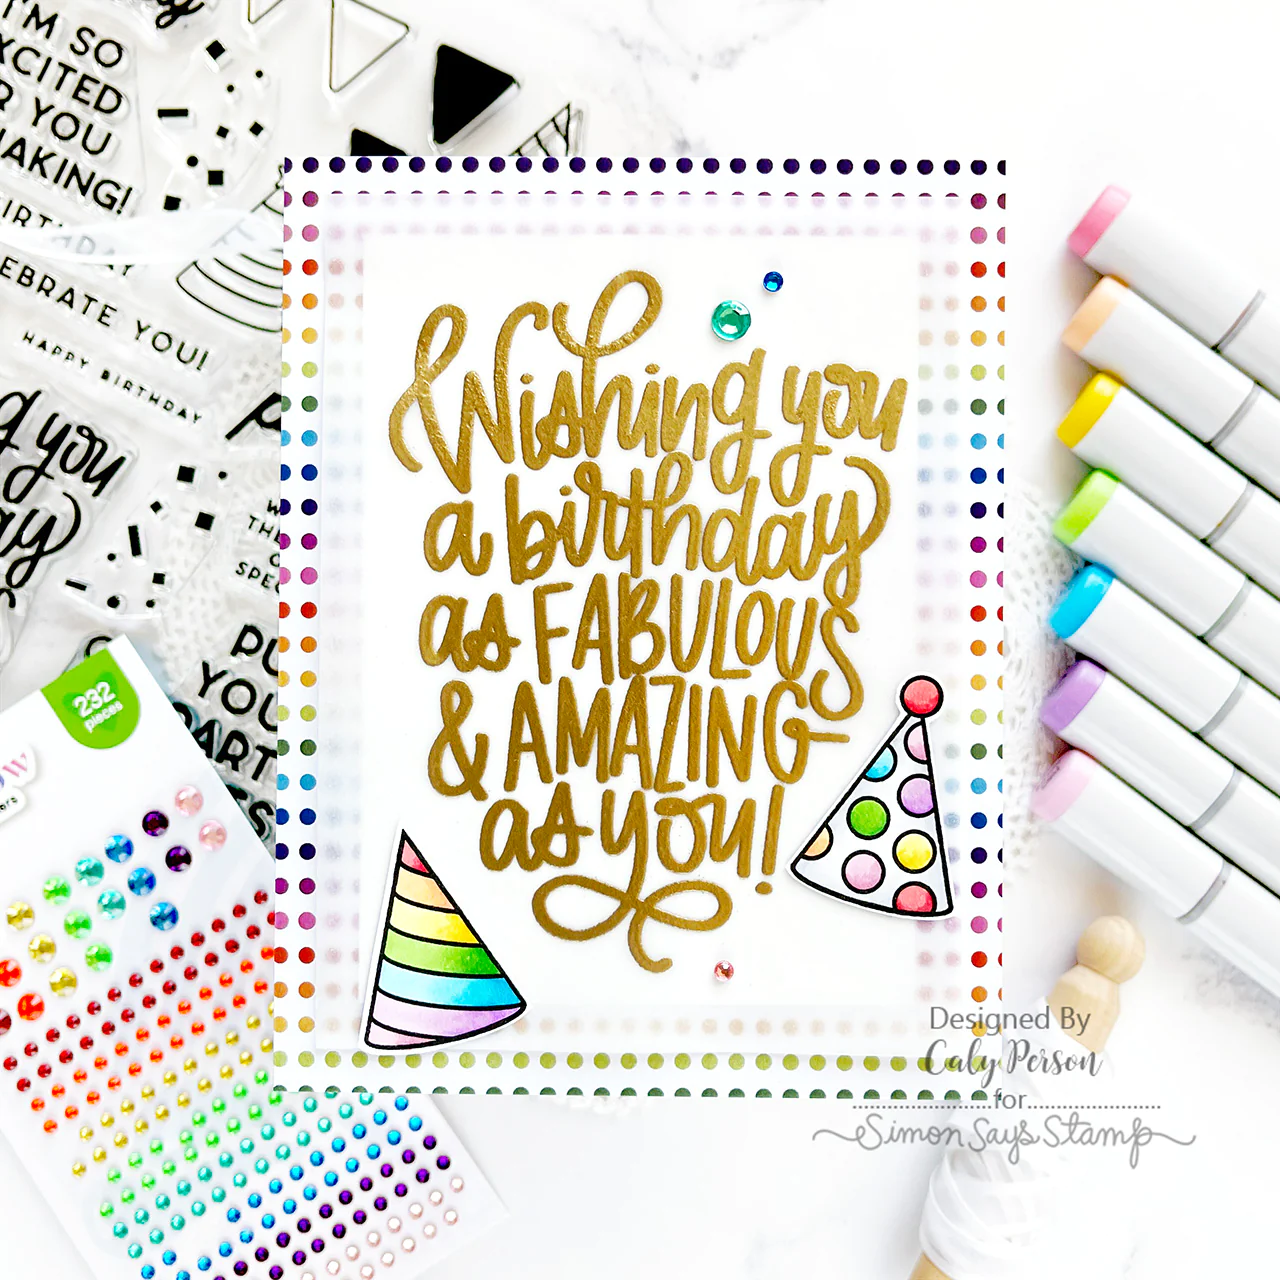 I'M SO
XCITED
R YOU
AKING!
IRTHDAY
EBRATE YOU!
HAPPY BIRTHDAY
g you
ay
W
THE
SPEC
PU
YOU
PART
232
pieces
ow
ers
Wishing you
a birthday
as FABULOUS
& AMAZING
as you!
Designed By
Caly Person
for
Simon Says Stamp